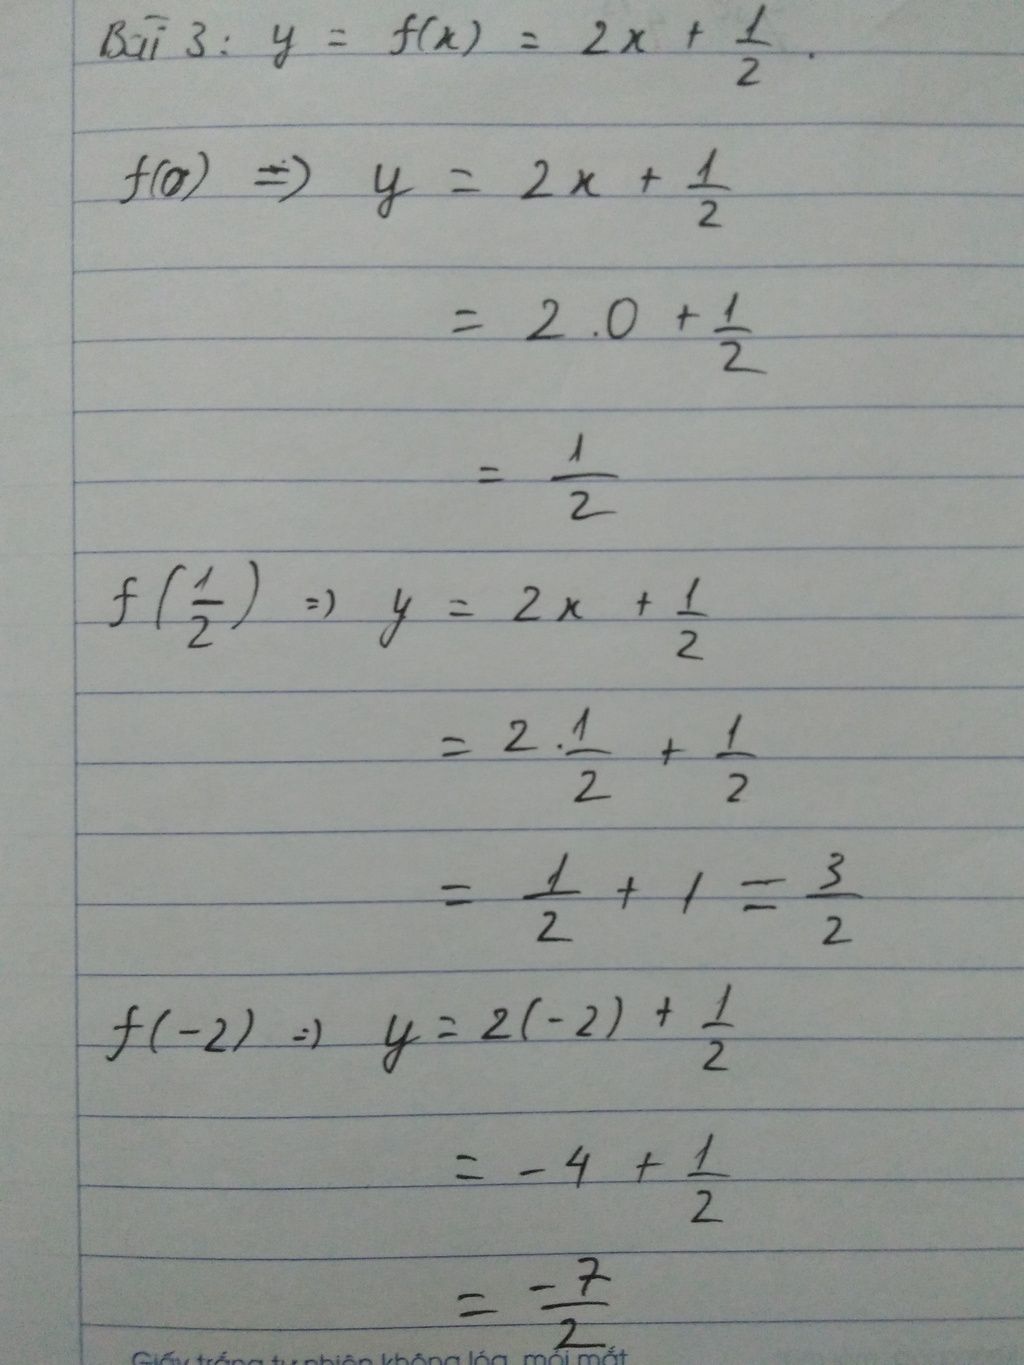 Bài 3: y = f(x) = 2x + 1/2.
f(0) => y = 2x + 1/2
= 2.0 + 1/2
= 1/2
f(1/2) => y = 2x + 1/2
= 2.1/2 + 1/2
= 1/2 + 1 = 3/2
f(-2) => y = 2(-2) + 1/2
= -4 + 1/2
= -7/2
Giấy trắng tự nhiên không lóa, mỏi mắt